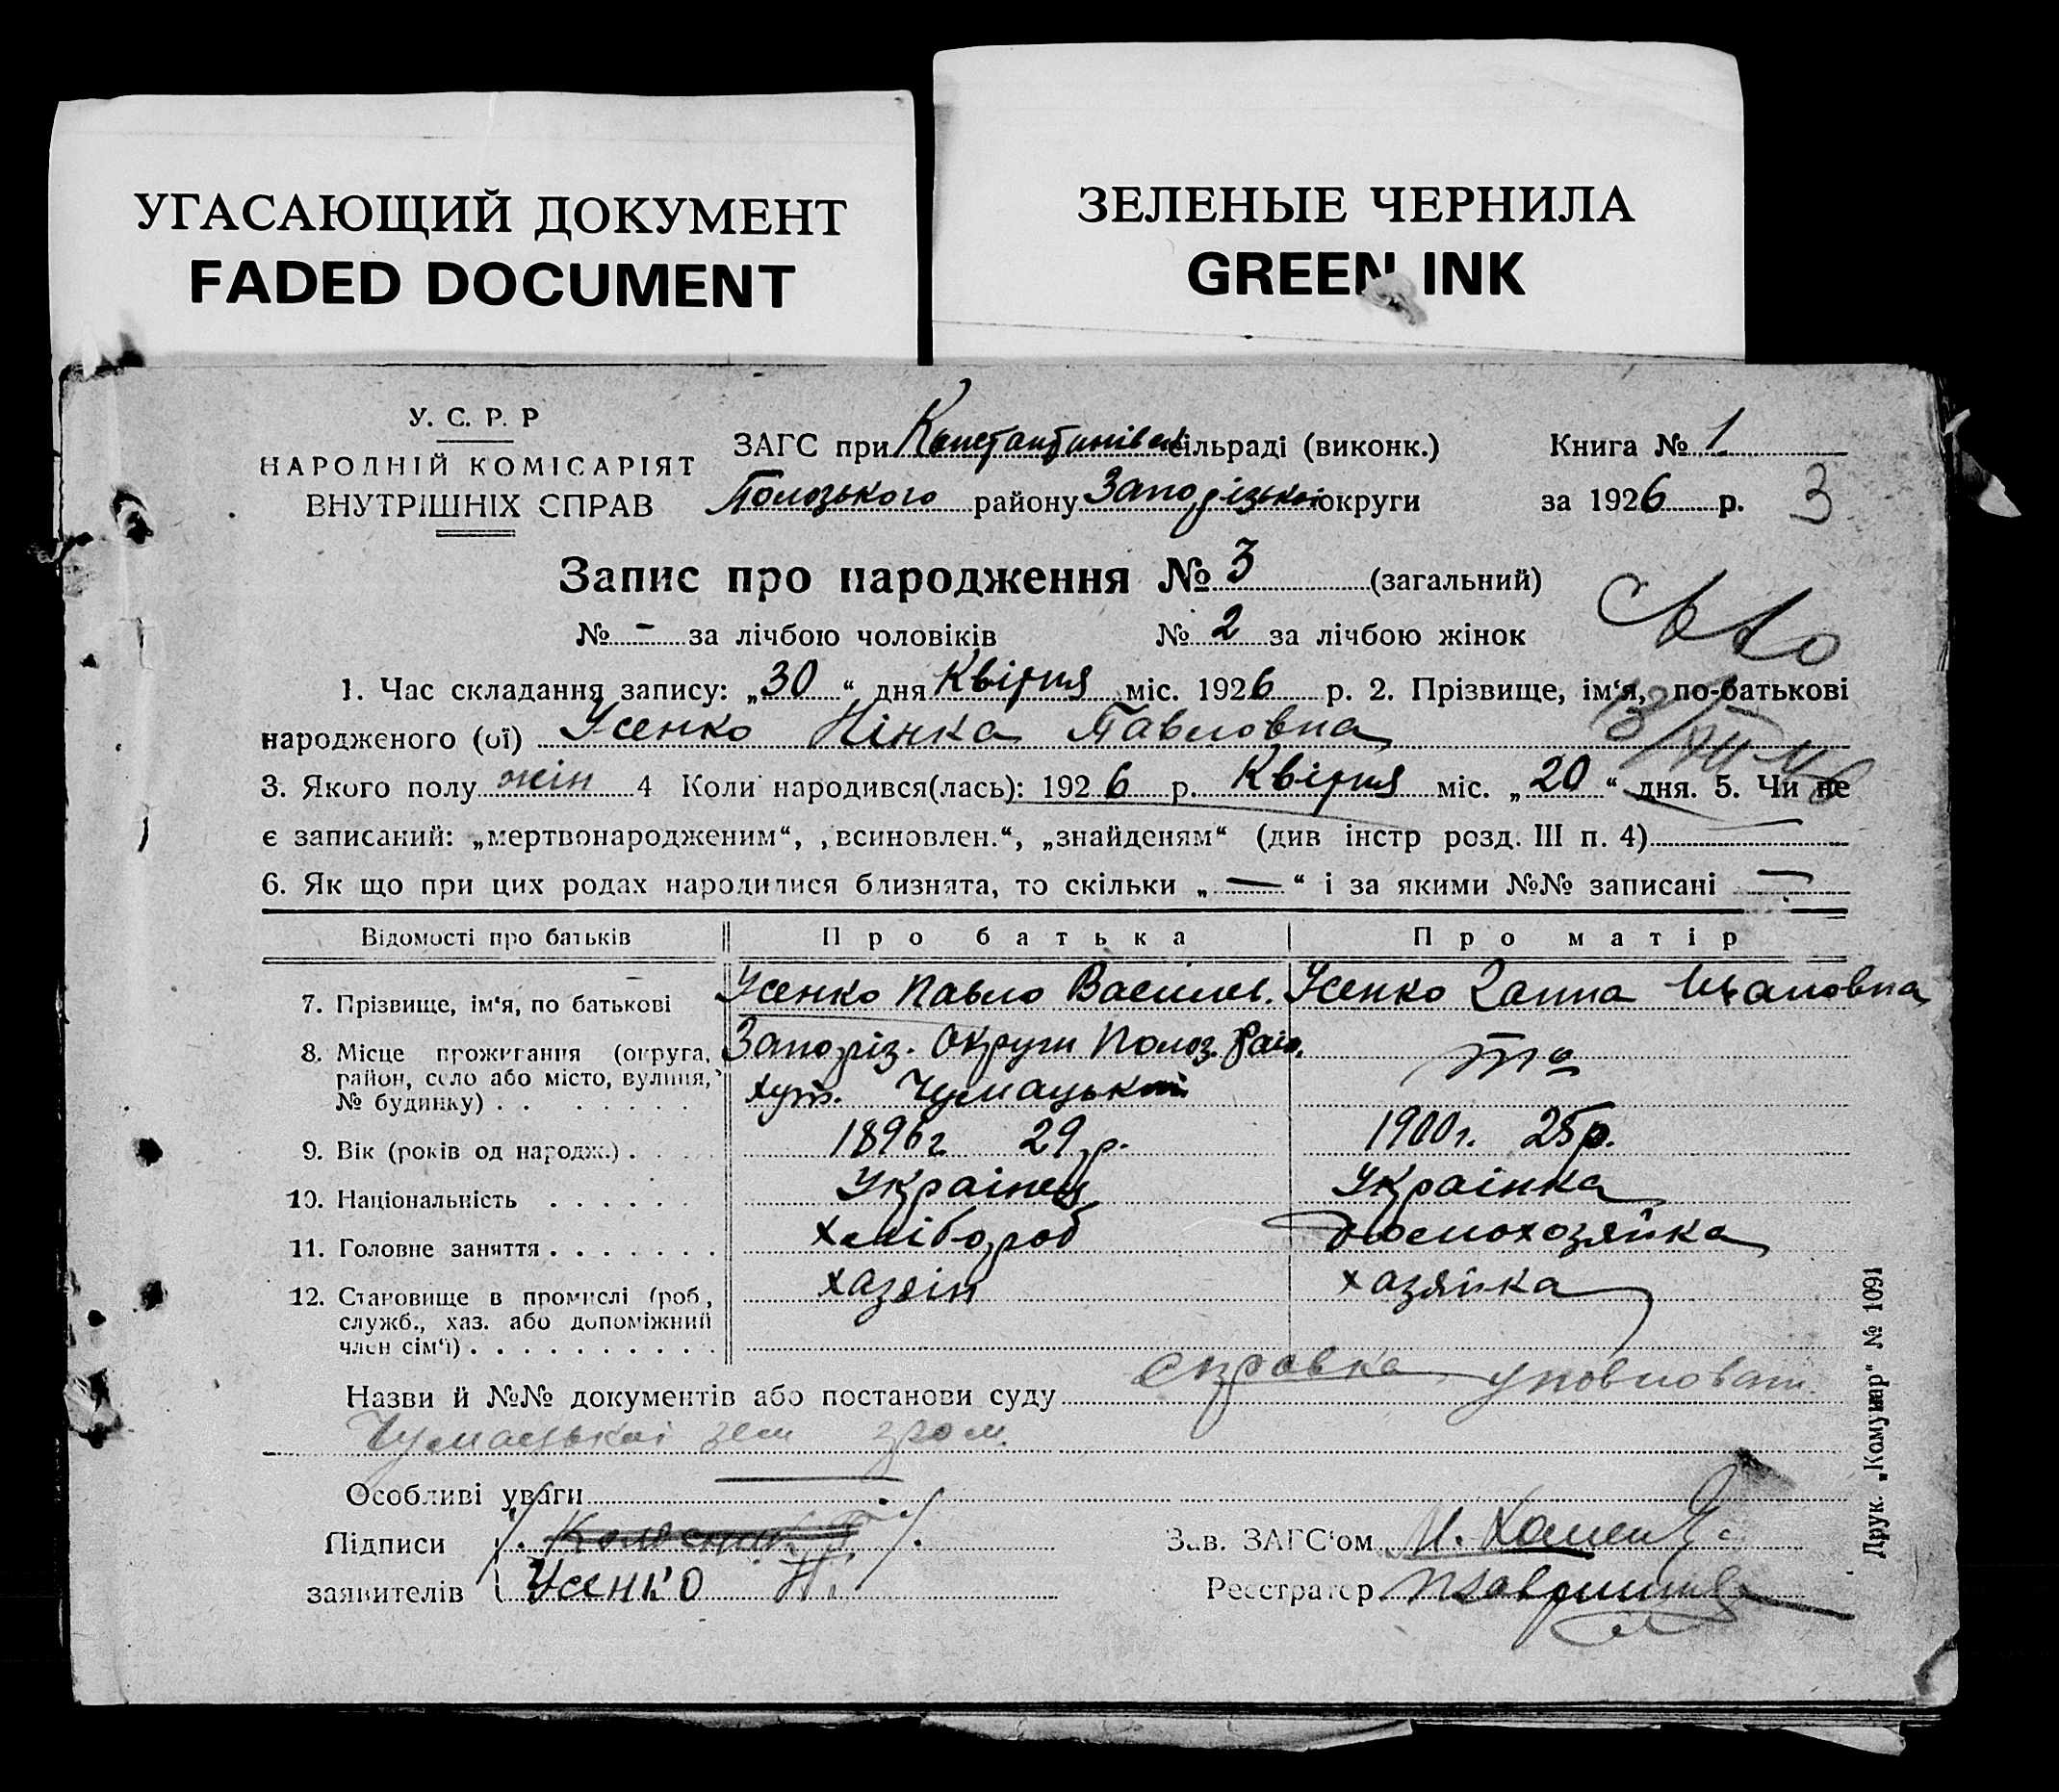 УГАСАЮЩИЙ ДОКУМЕНТ
FADED DOCUMENT
ЗЕЛЕНЫЕ ЧЕРНИЛА
GREEN INK
У. С. Р. Р
НАРОДНІЙ КОМІСАРІЯТ
ВНУТРІШНІХ СПРАВ
ЗАГС при Константинівск сільраді (виконк.)
Полозького району Запорізької округи
Книга № 1
за 1926 р. 3
Запис про народження № 3 (загальний)
№ - за лічбою чоловіків № 2 за лічбою жінок
1. Час складання запису: „30“ дня Квітня міс. 1926 р. 2. Прізвище, ім‘я, по-батькові
народженого (ої) Усенко Нінка Павловна
3. Якого полу жін 4 Коли народився(лась): 1926 р. Квітня міс. „20“ дня. 5. Чи не
є записаний: „мертвонародженим“, „всиновлен.“, „знайденям“ (див інстр розд. III п. 4) —
6. Як що при цих родах народилися близнята, то скільки „—“ і за якими №№ записані —
Відомості про батьків Про батька Про матір
7. Прізвище, ім‘я, по батькові Усенко Павло Василев. Усенко Ганна Ивановна
8. Місце проживання (округа, Запоріз. Округи Полоз. Раіо. то
район, село або місто, вулиця, хут. Чумацький
№ будинку) . . . . . . . .
9. Вік (років од народж.) . . . . 1896 г. 29 р. 1900 г. 25 р.
10. Національність . . . . . . Українец Українка
11. Головне заняття . . . . . . . Хлібороб Домохозяйка
12. Становище в промислі (роб., хазяін хазяйка
служб., хаз. або допоміжний
член сім‘ї) . . . . . . . . . .
Назви й №№ документів або постанови суду справка уповноваж.
Чумацькоі зем гром.
Особливі уваги —
Підписи
заявителів Усенко П.
Зав. ЗАГС‘ом И.
Реєстратор
Друк. „Комунар“ № 1091